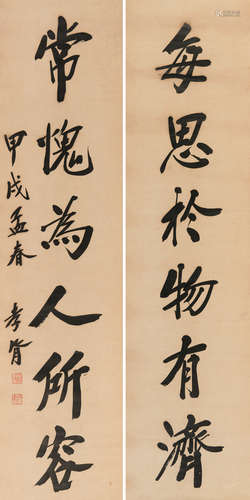 每思於物有濟
常愧為人所容
甲戌孟春 孝胥